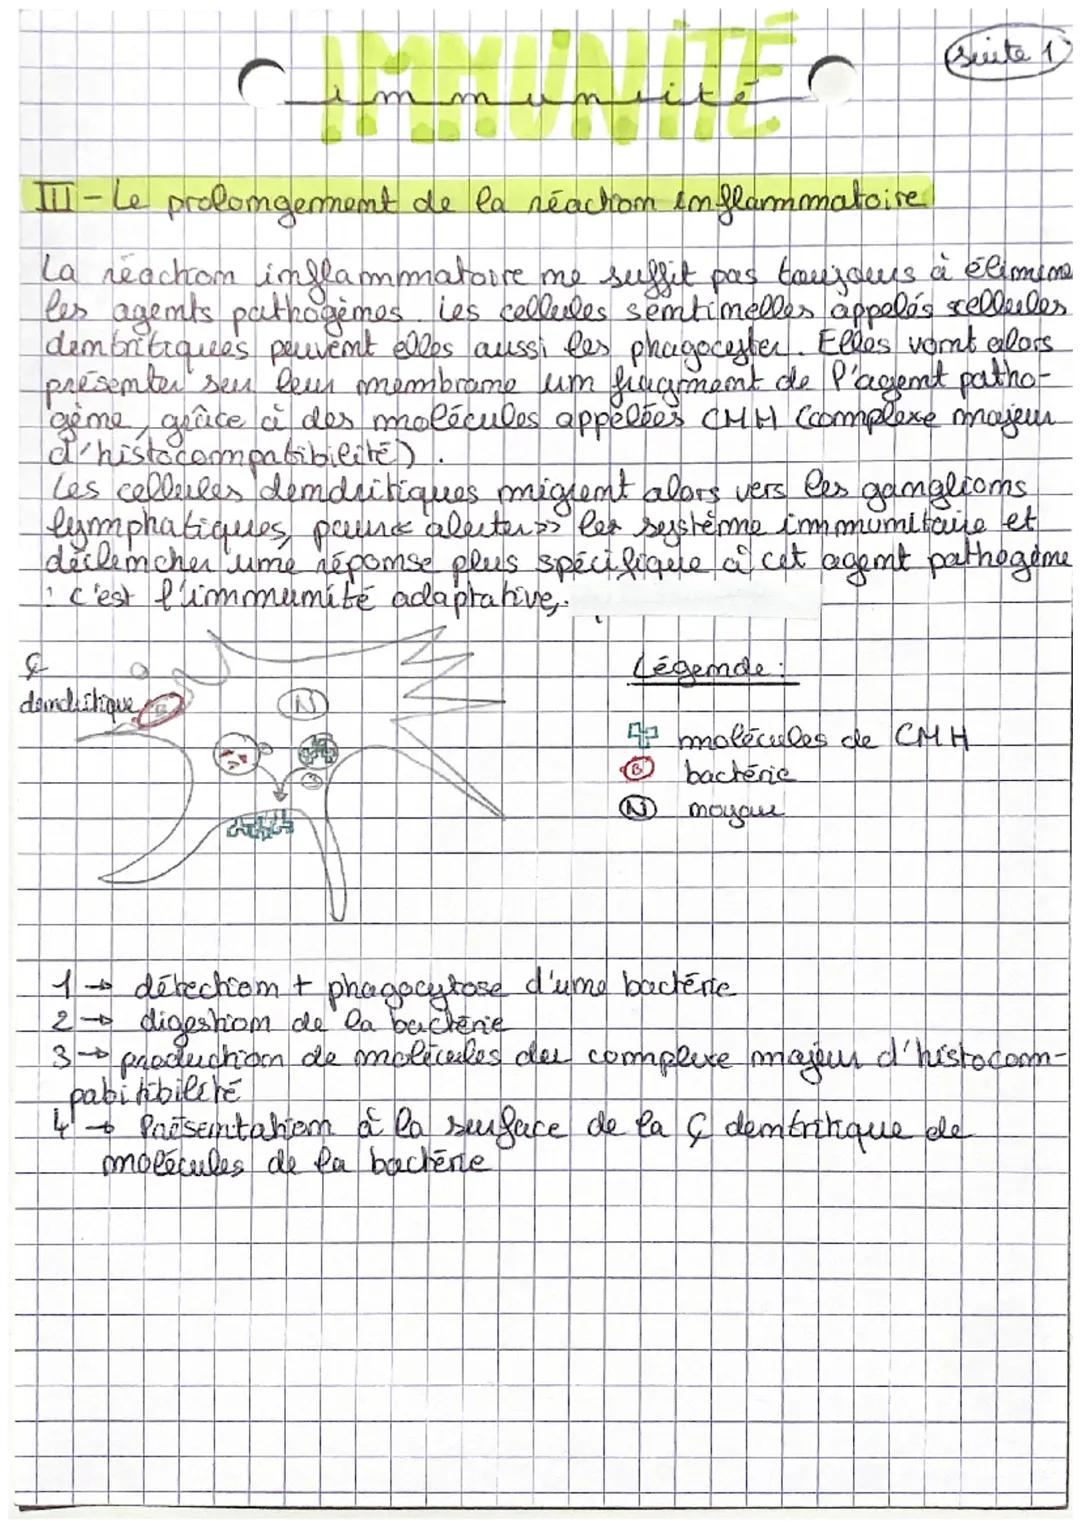 IMMUNITÉ
immunité
suite 1
III - Le prolongement de la réaction inflammatoire
La réaction inflammatoire ne suffit pas toujours à élimine
les agents pathogènes. Les cellules sentinelles appelés cellules
dentritiques peuvent elles aussi les phagocyter. Elles vont alors
présenter sur leur membrane un fragment de l'agent patho-
gène, grâce à des molécules appelées CMH (complexe majeur
d'histocompatibilité).
Les cellules dendritiques migrent alors vers les ganglions
lymphatiques, pour « alerter » les système immunitaire et
déclencher une réponse plus spécifique à cet agent pathogène
: c'est l'immunité adaptative,
Ç
dendritique
B
N
3
Légende :
molécules de CMH
B bactérie
N noyau
1 → détection + phagocytose d'une bactérie
2 → digestion de la bactérie
3 → production de molécules du complexe majeur d'histocom-
patibibilité
4 → Présentation à la surface de la Ç dentritique de
molécules de la bactérie